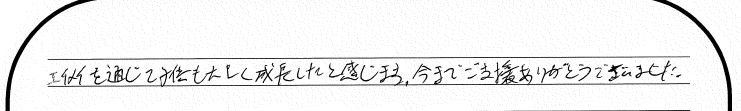 を通じて子供も大きく成長したと感じます。今までご支援ありがとうございました。